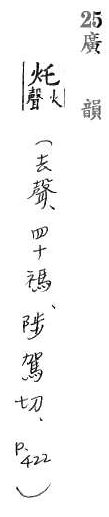 25 廣韻
灹
火
聲
(去聲、四十禡、陟駕切、p.422)